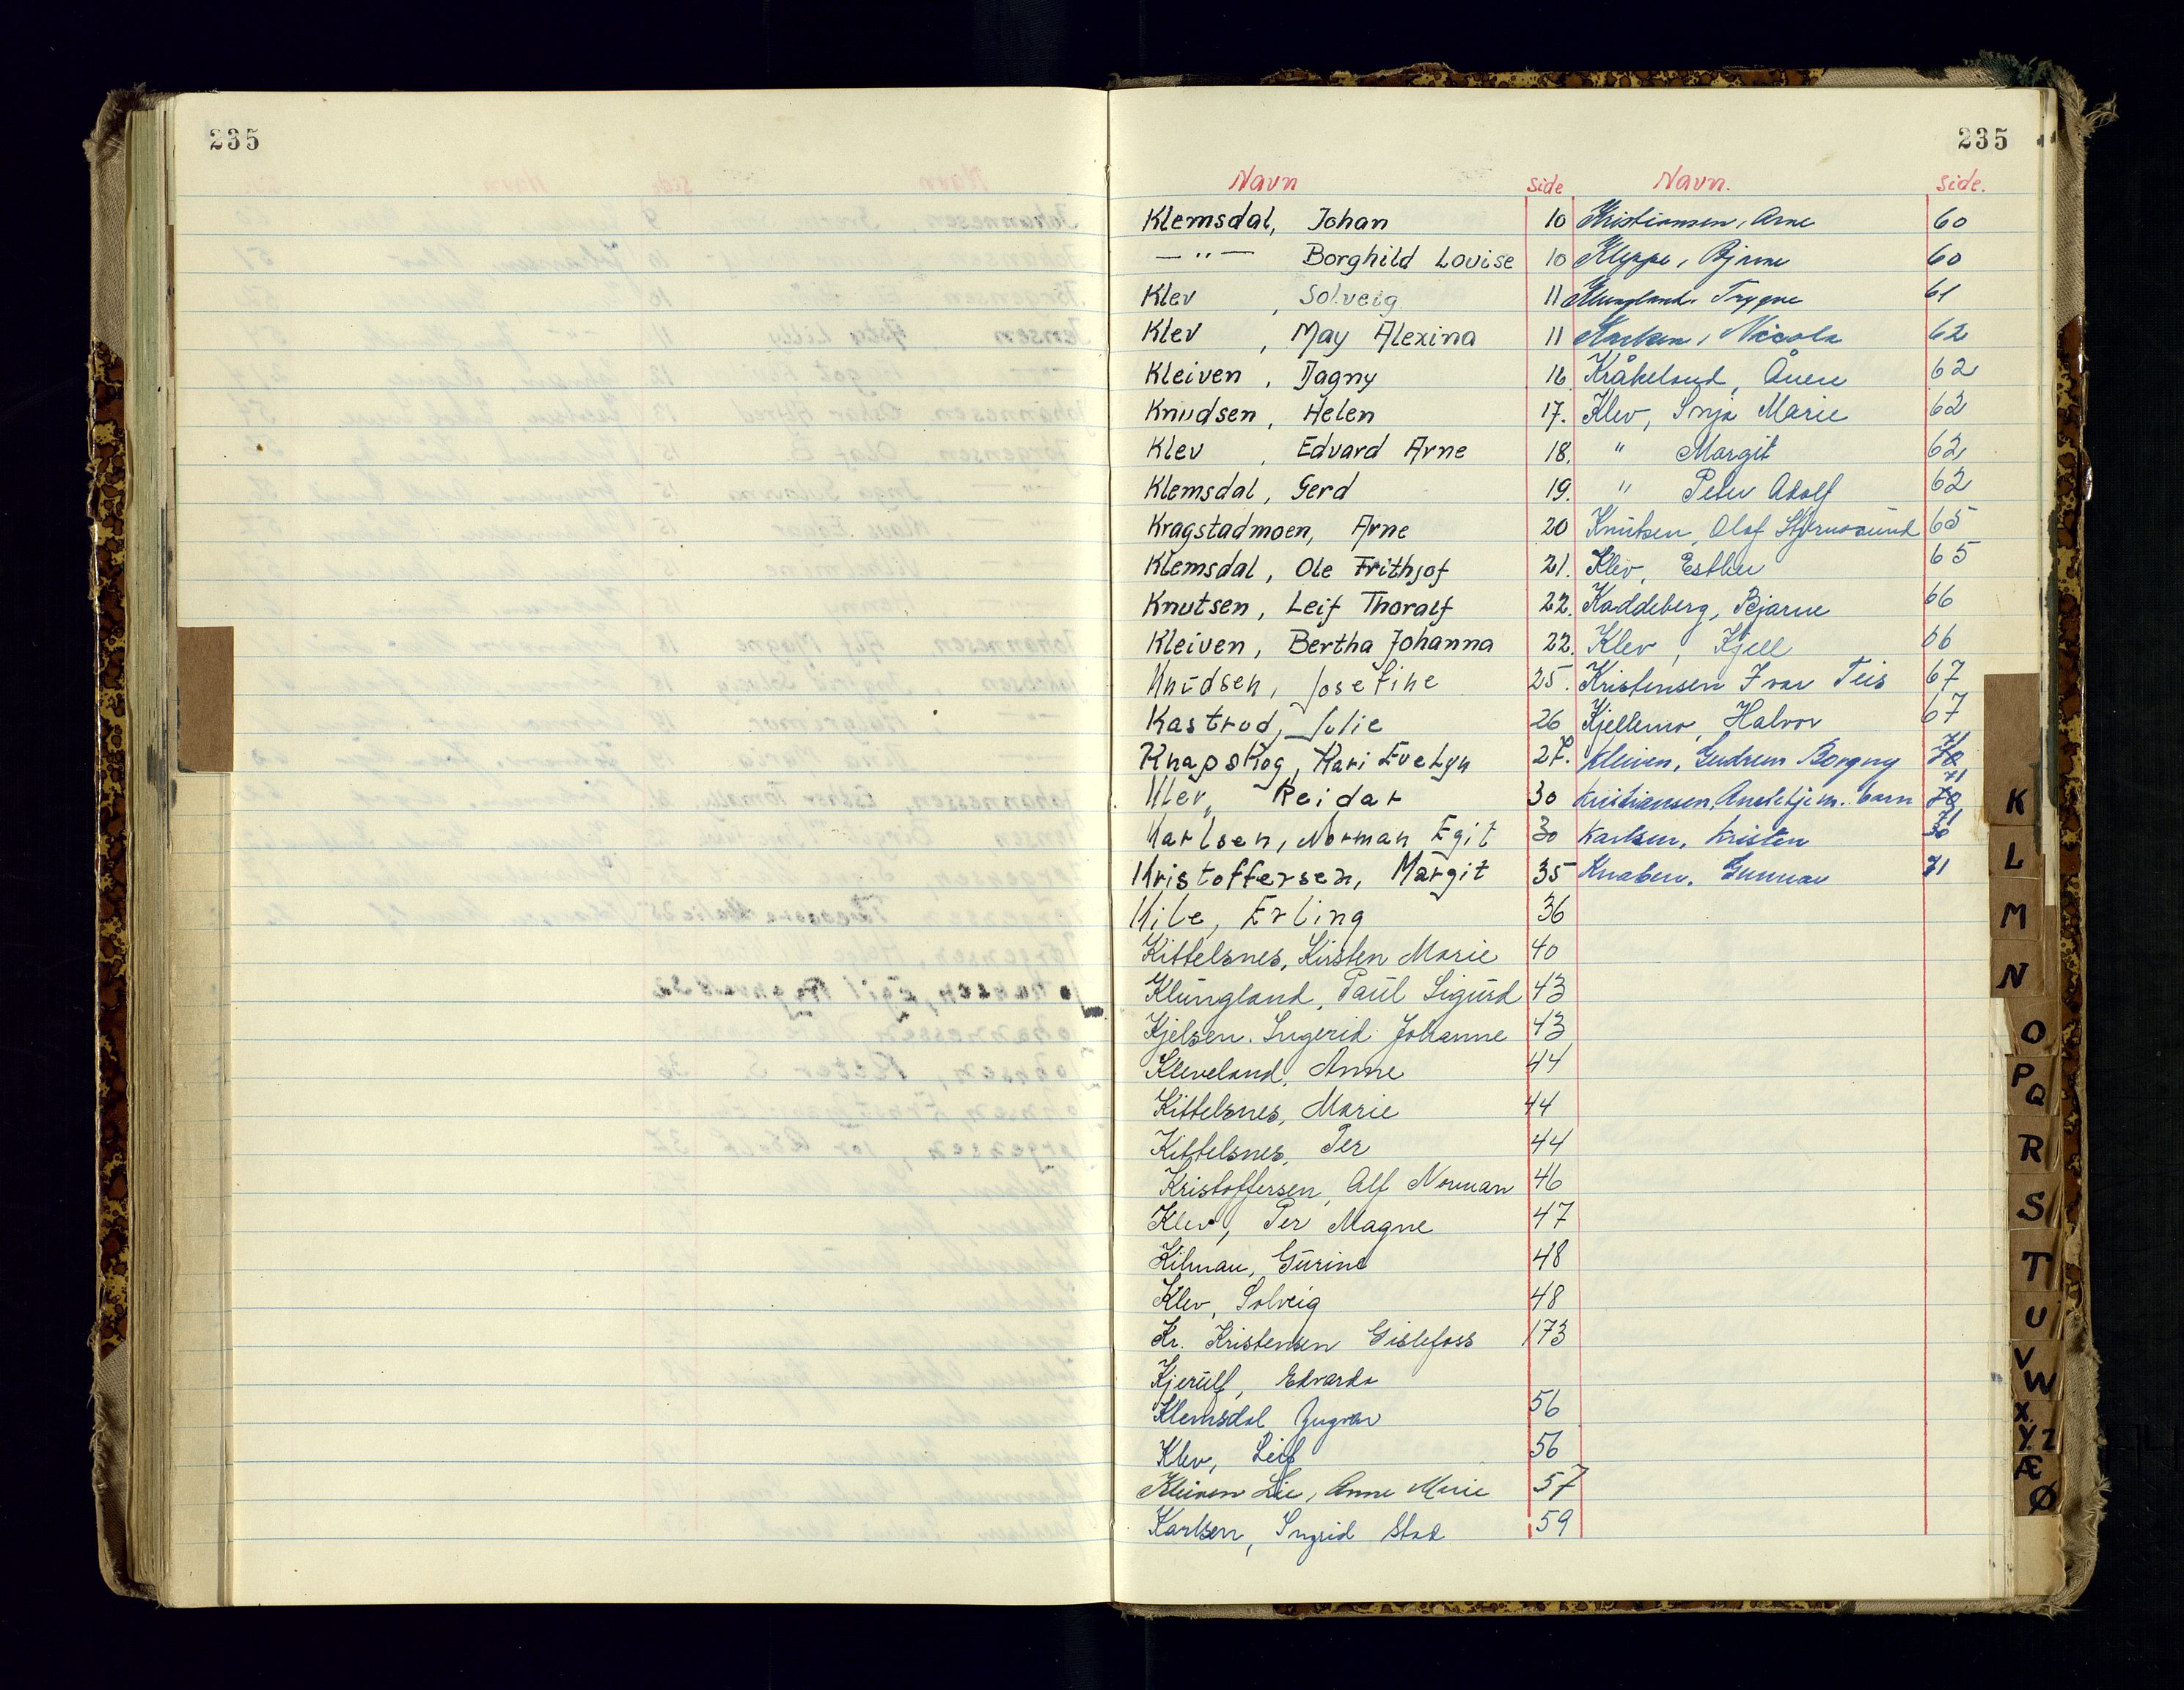 235
235
Navn side Navn. side.
Klemsdal, Johan 10
— " — Borghild Lovise 10
Klev , Solveig 11
Klev , May Alexina 11
Kleiven , Dagny 16
Knudsen , Helen 17.
Klev , Edvard Arne 18.
Klemsdal , Gerd 19.
Kragstadmoen, Arne 20
Klemsdal , Ole Frithjof 21.
Knutsen , Leif Thoralf 22.
Kleiven , Bertha Johanna 22.
Knudsen, Josefine 25.
Kastrud, Julie 26
Knapskog, Kari Evelyn 27.
Klev, Reidar 30
Karlsen, Norman Egit 30
Kristoffersen, Margit 35
Kile, Erling 36
Kittelsnes, Kirsten Marie 40
Klungland, Paul Sigurd 43
Kjelsen. Ingerid Johanne 43
Kleveland, Anne 44
Kittelsnes, Marie 44
Kittelsnes, Per 44
Kristoffersen, Alf Norman 46
Klev, Per Magne 47
Kilman, Gurine 48
Klev, Solveig 48
Kr. Kristensen Gislefoss 173
Kjerulf, Edvarda
Klemsdal Yngvar 56
Klev, Leif 56
Kleiven Lie, Anne Marie 57
Karlsen, Ingrid Stad 59
Kristiansen, Arne 60
Kleppe, Bjarne 60
Klungland. Trygve 61
Karlsen, Nicolai 62
Kråkeland, Ånen 62
Klev, Inja Marie 62
" Margit 62
" Peter Adolf 62
Knutsen, Olaf Stjernesund 65
Klev, Esther 65
Kaddeberg, Bjarne 66
Klev, Kjell 66
Kristensen Ivar Teis 67
Kjellemo, Halvor 67
Kleiven, Gudrun Borgny 70 71
Kristiansen, barn 70 71
Karlsen, Kristen 71
Knaben. Gunnar 71
K
L
M
N
O
P Q
R
S
T
U
V W
X Y Z
Æ
Ø